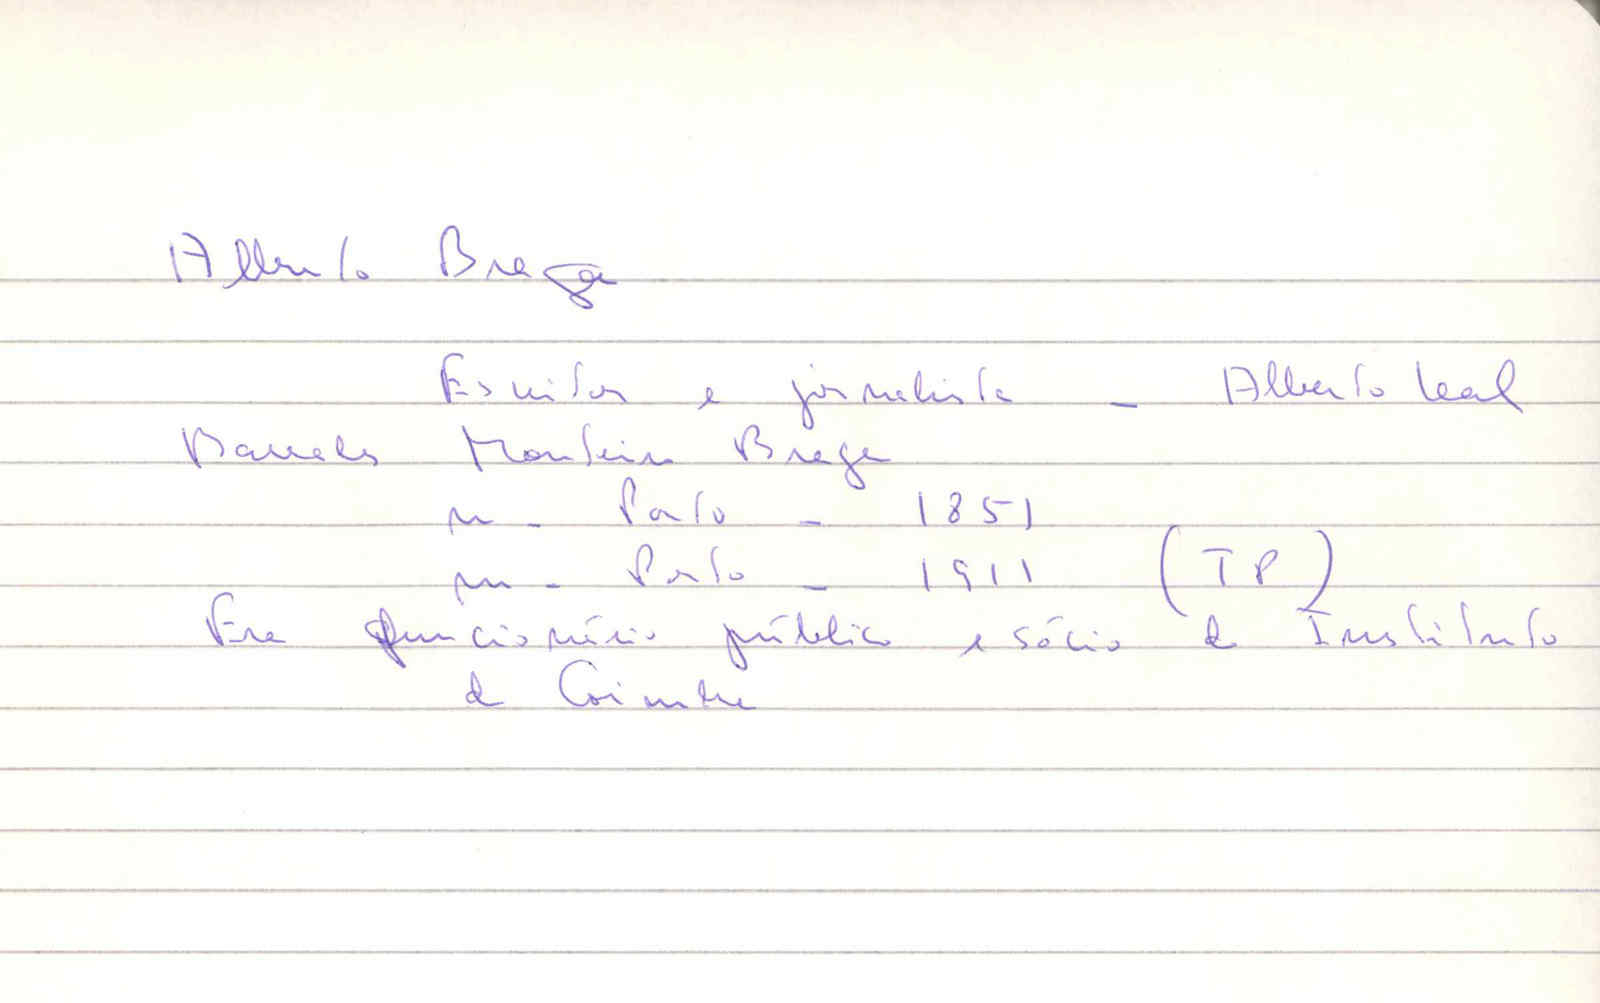 Alberto Braga
Escritor e jornalista - Alberto Leal
Barreto Monteiro Braga
n - Porto - 1851
m - Porto - 1911 (TP)
Era funcionário público e sócio do Instituto
de Coimbra